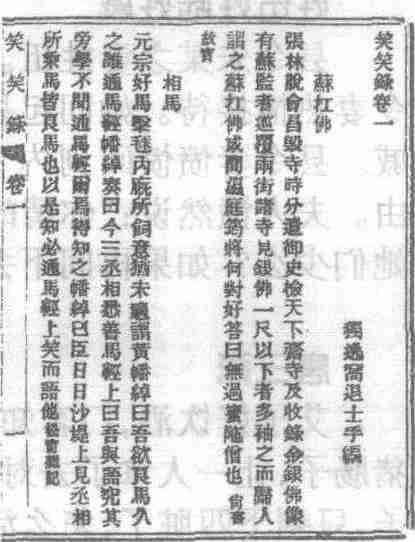 笑笑錄卷一
獨逸窩退士手編
蘇杠佛
張林說會昌毀寺時分遣御史檢天下齋寺及收錄金銀佛像
有蘇監者巡覆兩街諸寺見銀佛一尺以下者多袖之而歸人
謂之蘇杠佛或問溫庭筠將何對好答曰無過蜜陁僧也 尚書
故實
相馬
元宗好馬擊毬內廐所飼意猶未愜謂黃幡綽曰吾欲良馬久
之誰通馬經幡綽奏曰今三丞相悉善馬經上曰吾與語究其
旁學不聞通馬經爾焉得知之幡綽曰臣日日沙堤上見丞相
所乘馬皆良馬也以是知必通馬經上笑而語他 松窗雜記
笑笑錄 卷一 一